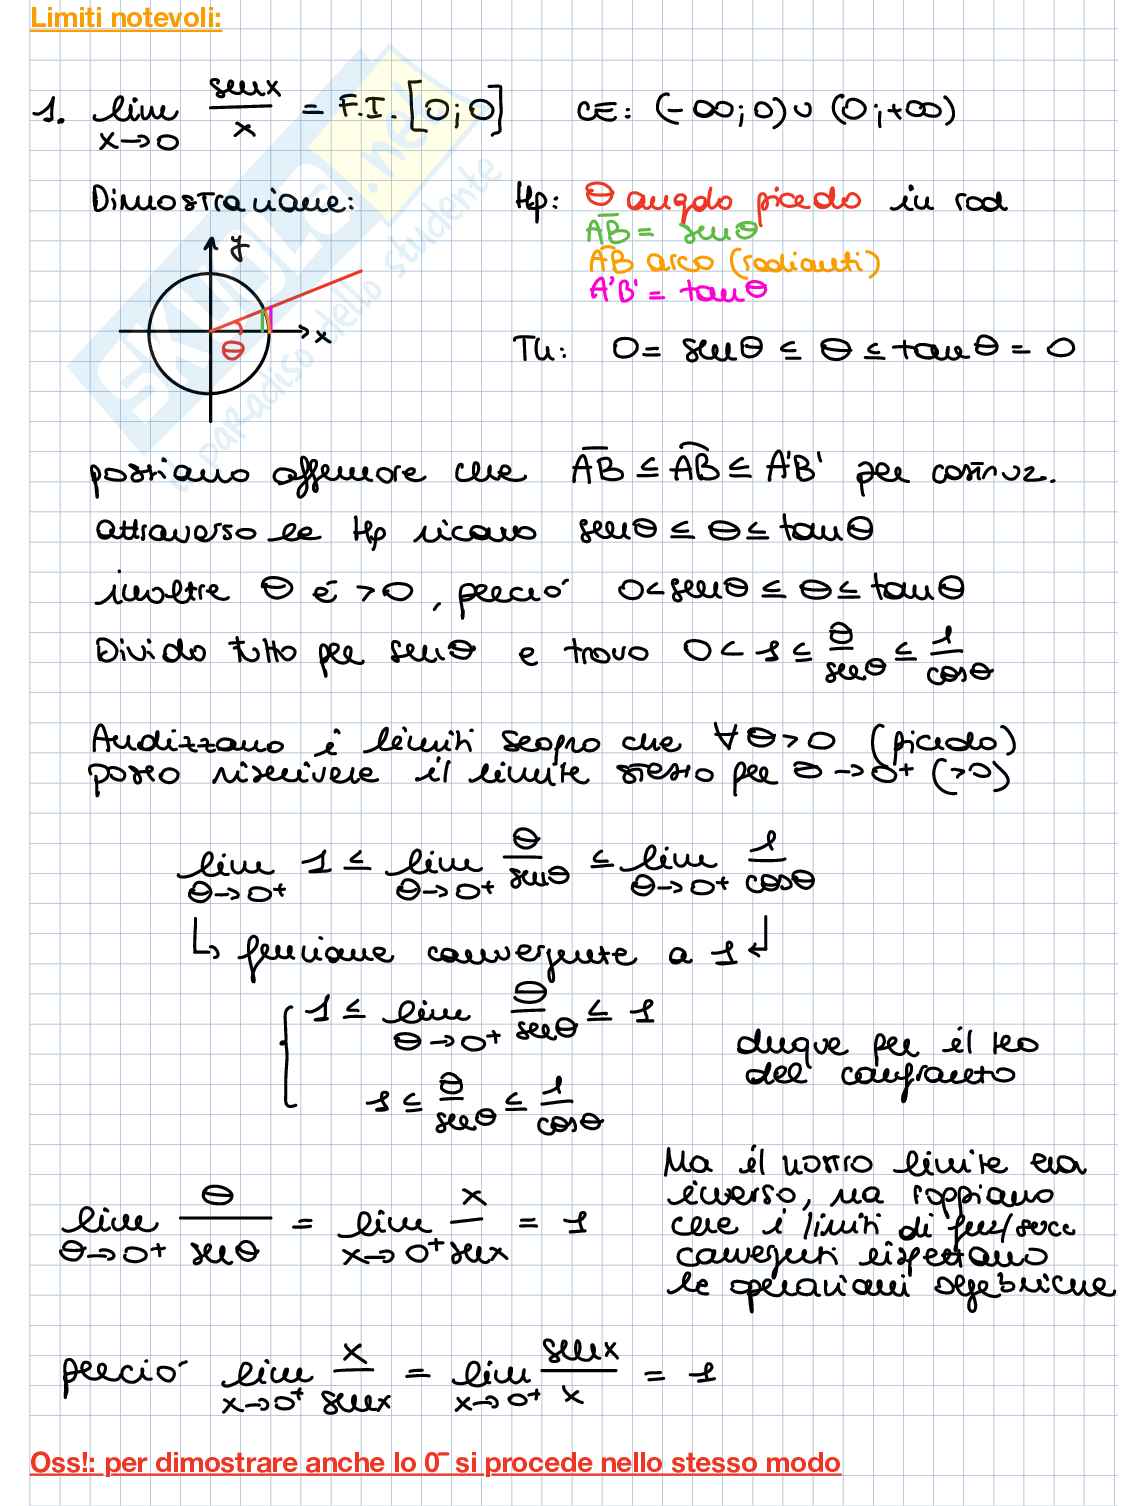 Limiti notevoli:
1. lim x→0 senx/x = F.I. [0;0] CE: (-∞;0)∪(0;+∞)
Dimostrazione: Hp: θ angolo piccolo in rad
A̅B̅ = senθ
A͡B arco (radianti)
A'B' = tanθ
y
x
θ
Th: 0= senθ ≤ θ ≤ tanθ = 0
possiamo affermare che A̅B̅ ≤ A͡B ≤ A'B' per costruz.
attraverso le Hp ricavo senθ ≤ θ ≤ tanθ
inoltre θ é >0, perció 0<senθ ≤ θ ≤ tanθ
Divido tutto per senθ e trovo 0 < 1 ≤ θ/senθ ≤ 1/cosθ
Analizzano i limiti scopro che ∀θ>0 (piccolo)
posso riscrivere il limite stesso per θ→0⁺ (>0)
lim θ→0⁺ 1 ≤ lim θ→0⁺ θ/senθ ≤ lim θ→0⁺ 1/cosθ
↳ funzione convergente a 1 ↲
{ 1 ≤ lim θ→0⁺ θ/senθ ≤ 1
1 ≤ θ/senθ ≤ 1/cosθ
dunque per il teo
del confronto
lim θ→0⁺ θ/senθ = lim x→0⁺ x/senx = 1
Ma il nostro limite era
inverso, ma sappiamo
che i limiti di funz/succ
convergenti rispettano
le operazioni algebriche
perció lim x→0⁺ x/senx = lim x→0⁺ senx/x = 1
Oss!: per dimostrare anche lo 0⁻ si procede nello stesso modo